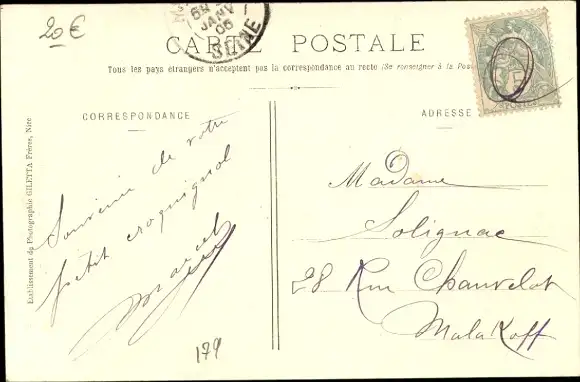 20 €
JANV
06
SEINE
CARTE POSTALE
Tous les pays étrangers n'acceptent pas la correspondance au recto (Se renseigner à la Poste
CORRESPONDANCE
ADRESSE
Etablissement de Photographie GILETTA Frères, Nice
Souvenir de votre
petit croquignol
Marcel
179
Madame
Solignac
28 Rue Chauvelot
Malakoff